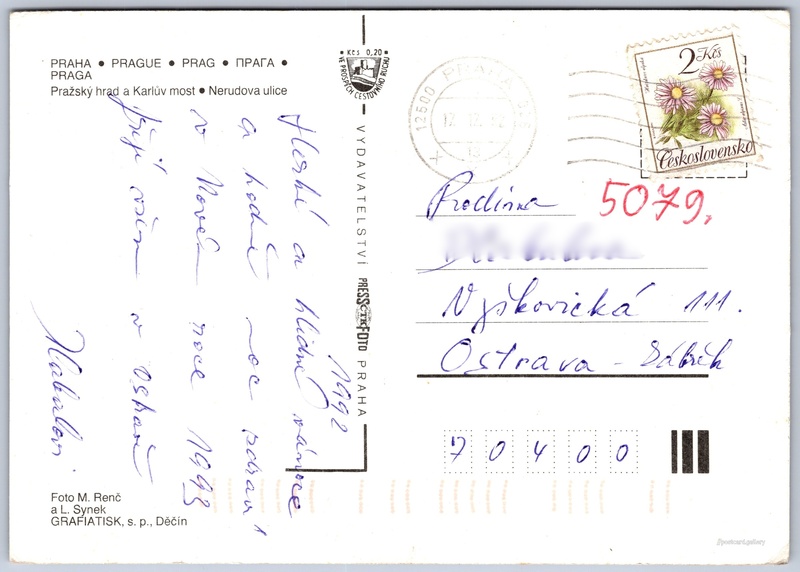 PRAHA • PRAGUE • PRAG • ПРАГА •
PRAGA
Pražský hrad a Karlův most • Nerudova ulice
Hezké a klidné vánoce
1992
a hodně moc zdraví
v Novém roce 1993
přejí všem v Ostravě
Foto M. Renč
a L. Synek
GRAFIATISK, s. p., Děčín
Kčs 0,20
VE PROSPĚCH CESTOVNÍHO RUCHU
VYDAVATELSTVÍ PRESSFOTO PRAHA
ČTK
12500 PRAHA
12.12.92
2 Kčs
Československo
5079,
Rodina
Výškovická 111.
Ostrava - Zábřeh
70400